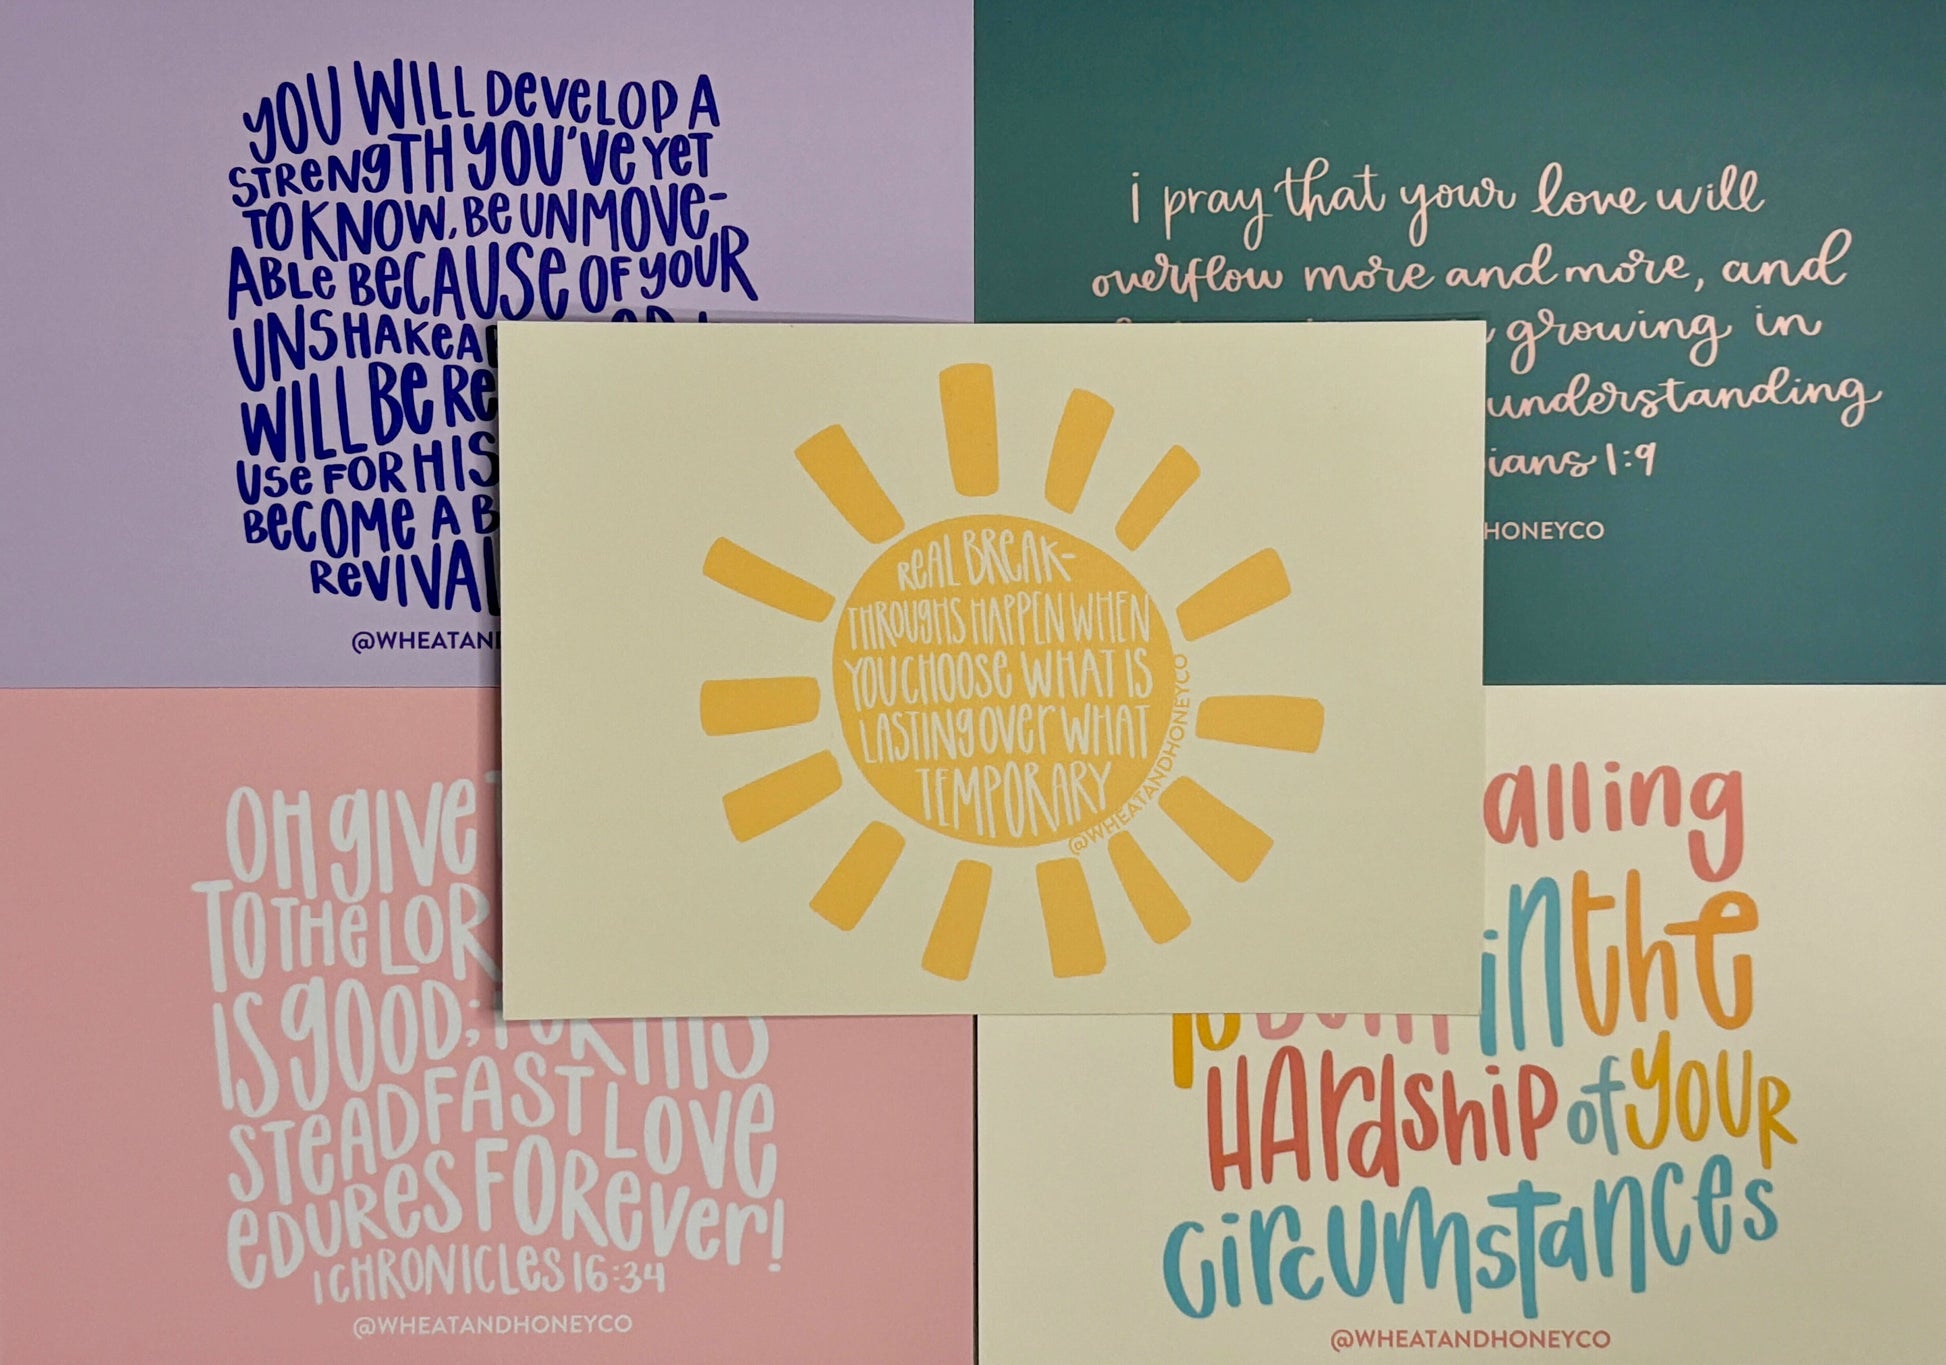 YOU WILL DEVELOP A
STRENGTH YOU'VE YET
TO KNOW, BE UNMOVE-
ABLE BECAUSE OF YOUR
WILL BE
USE FOR HIS
BECOME A
@WHEATAN
i pray that your love will
overflow more and more, and
growing in
understanding
1:9
HONEYCO
REAL BREAK-
THROUGHS HAPPEN WHEN
YOU CHOOSE WHAT IS
LASTING OVER WHAT
TEMPORARY
@WHEATANDHONEYCO
OH GIVE
TO THE LOR
IS GOOD; FOR HIS
STEADFAST LOVE
EDURES FOREVER!
1 CHRONICLES 16:34
@WHEATANDHONEYCO
alling
in the
HARDSHIP of YOUR
CIRCUMSTANCES
@WHEATANDHONEYCO